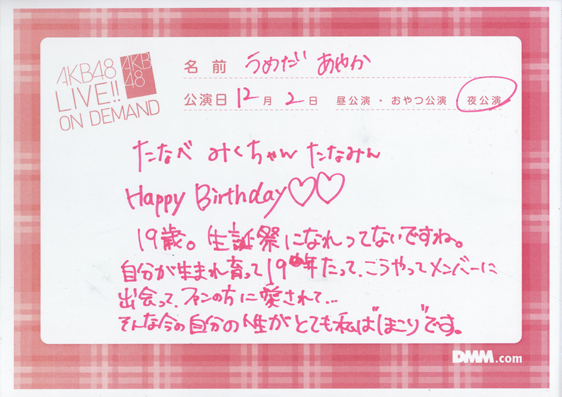 AKB48
LIVE!!
ON DEMAND
AKB
48
名前 うめだ あやか
公演日 12月2日 昼公演・おやつ公演・夜公演
たなべ みくちゃん たなみん
Happy Birthday♡♡
19歳。生誕祭になれってないですね。
自分が生まれ育って19年たって、こうやってメンバーに
出会って、ファンの方に愛されて…
そんな今の自分の人生がとても私は"ほこり"です。
DMM.com